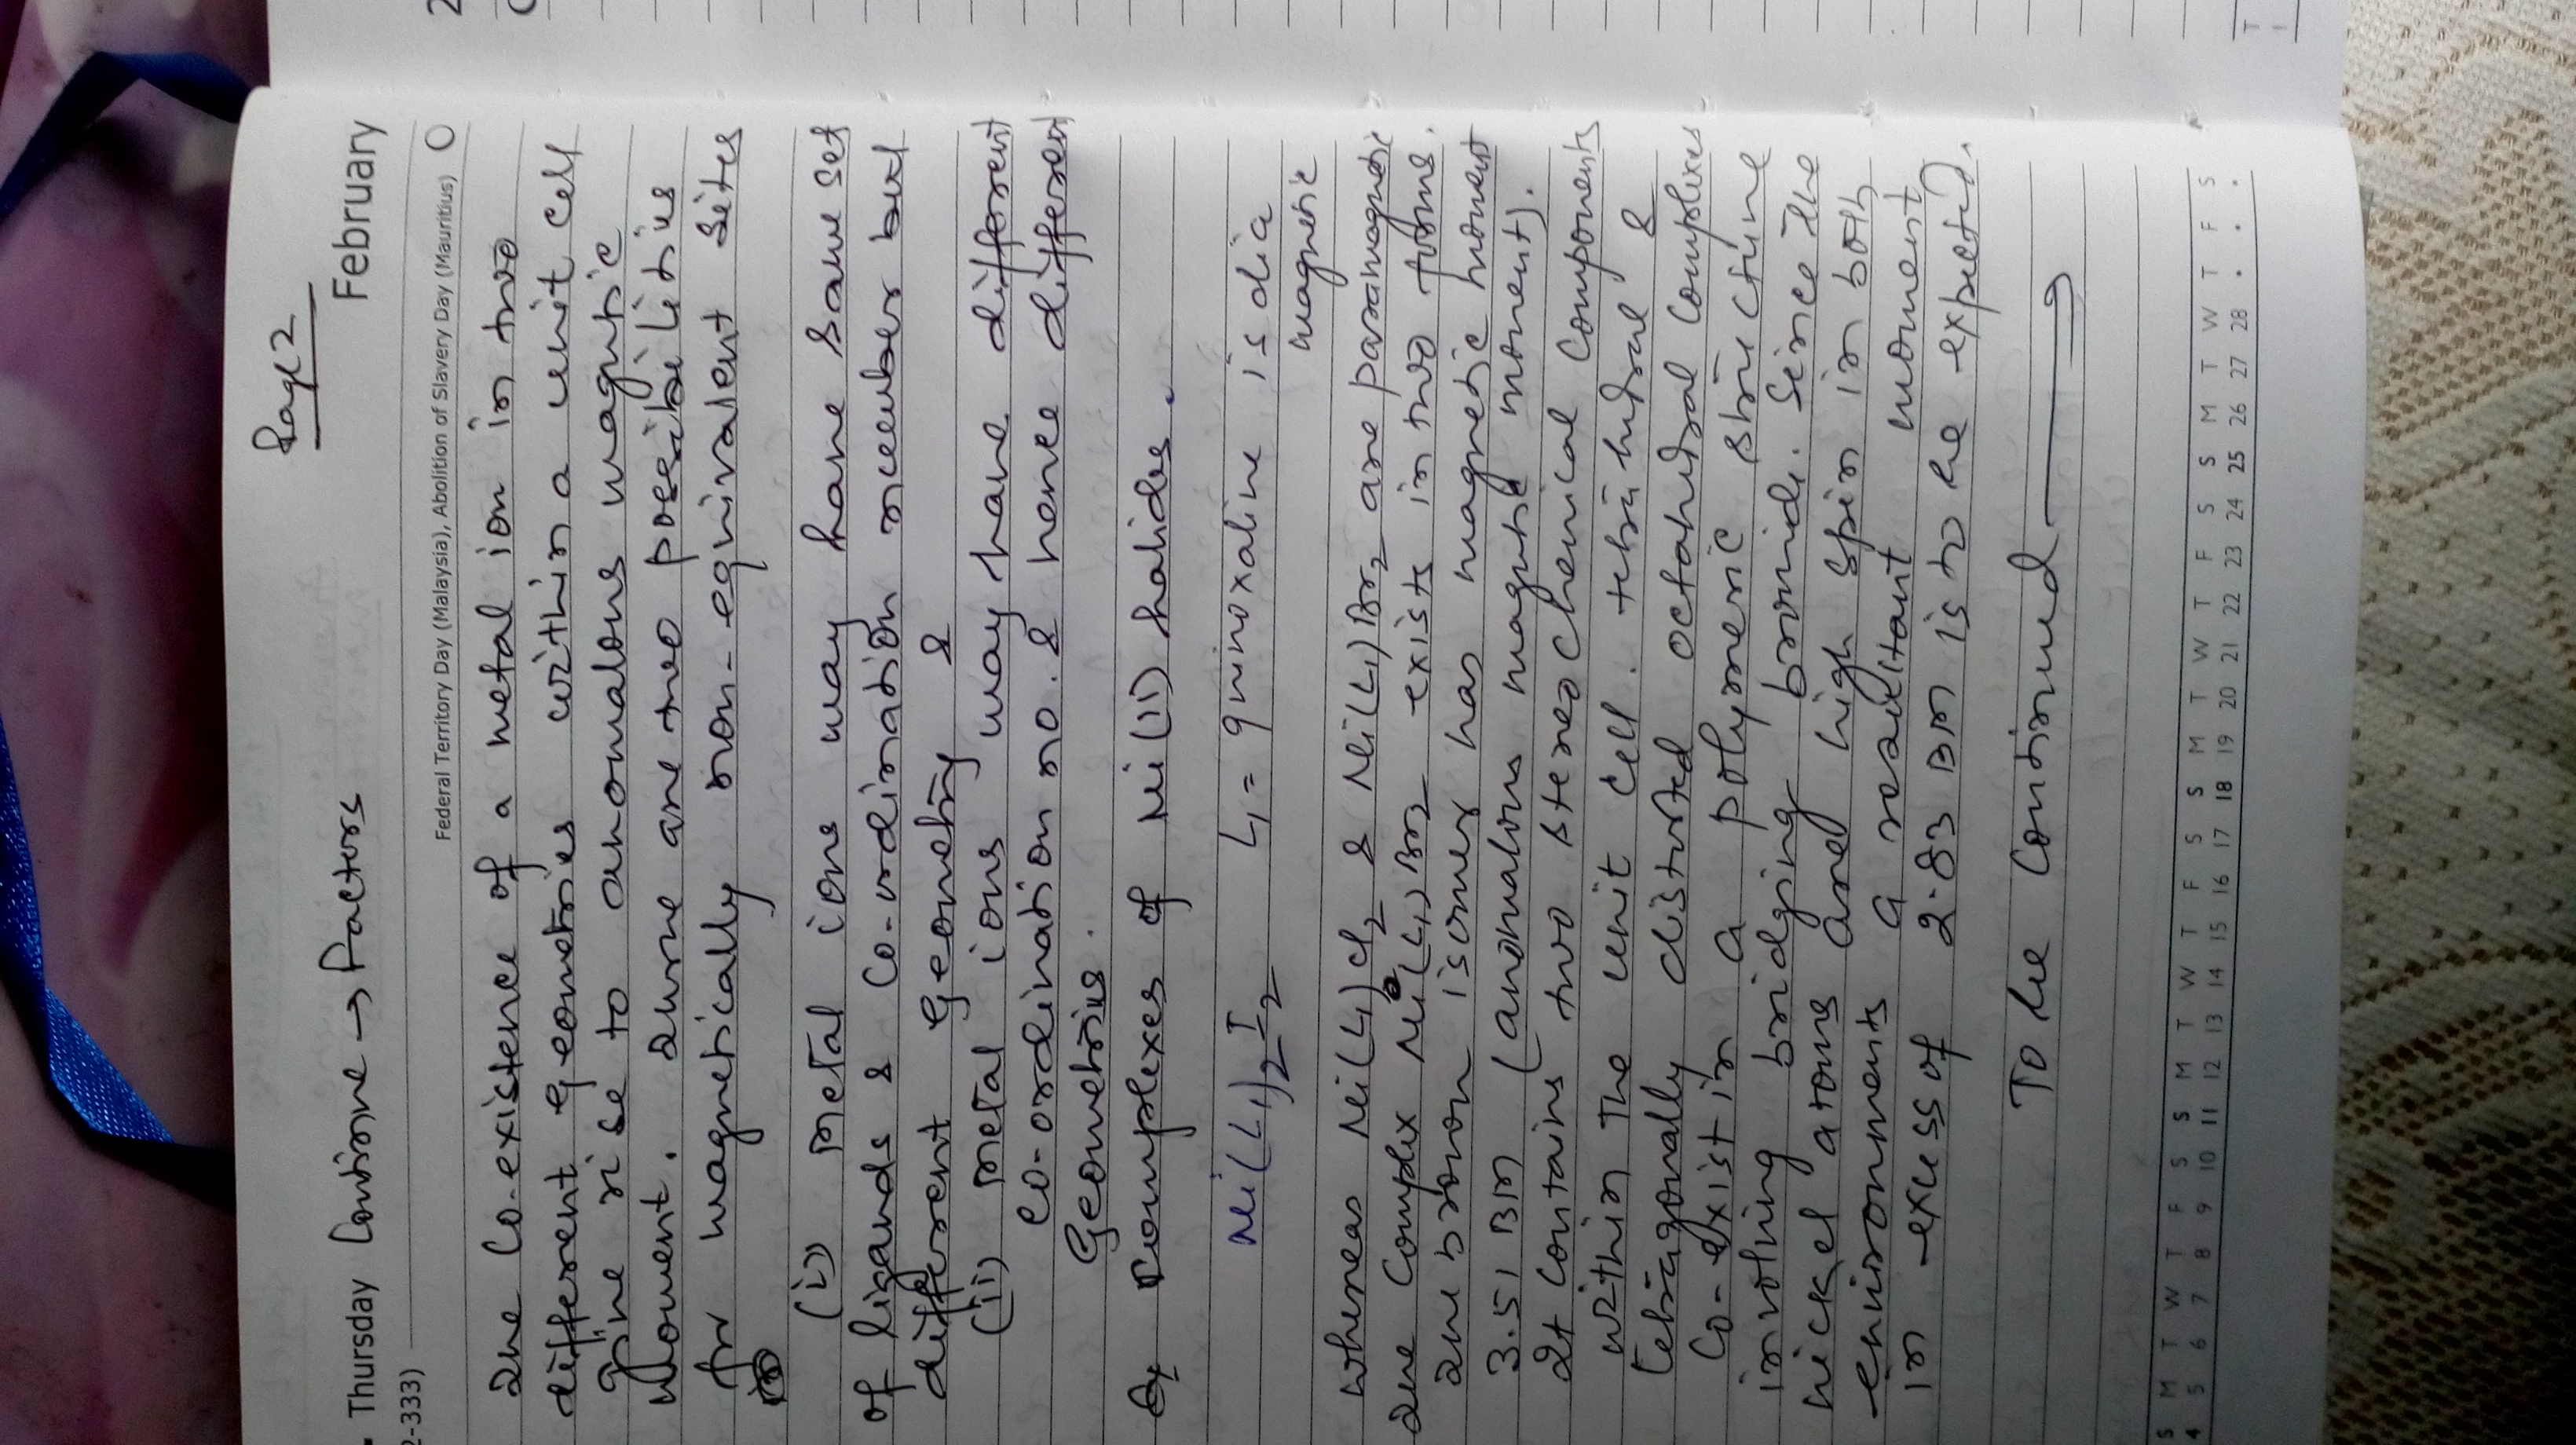 Page 2
Thursday Continue → Factors February
2-333) Federal Territory Day (Malaysia), Abolition of Slavery Day (Mauritius)
The Co-existence of a metal ion in two
different geometries within a unit cell
give rise to anomalous magnetic
moment. There are two possibilities
for magnetically non-equivalent sites
(i) Metal ions may have same set
of ligands & Co-ordination number but
different geometry &
(ii) Metal ions may have different
Co-ordination no. & hence different
Geometries.
Ex Complexes of Ni(II) halides.
Ni(L1)2I2 L1 = quinoxaline is dia
magnetic
whereas Ni(L1)Cl2 & Ni(L1)Br2 are paramagnetic
The Complex Ni(L1)Br2 exists in two forms.
The brown isomer has magnetic moment
3.51 BM (anomalous magnetic moment).
It contains two stereochemical Components
within the unit cell. tetrahedral &
tetragonally distorted octahedral complexes
Co-exist in a polymeric structure
involving bridging bromide. Since the
nickel atoms are high spin in both
environments a resultant moment
in excess of 2.83 BM is to be expected.
To be Continued
S M T W T F S S M T W T F S S M T W T F S S M T W T F S
4 5 6 7 8 9 10 11 12 13 14 15 16 17 18 19 20 21 22 23 24 25 26 27 28 . . .